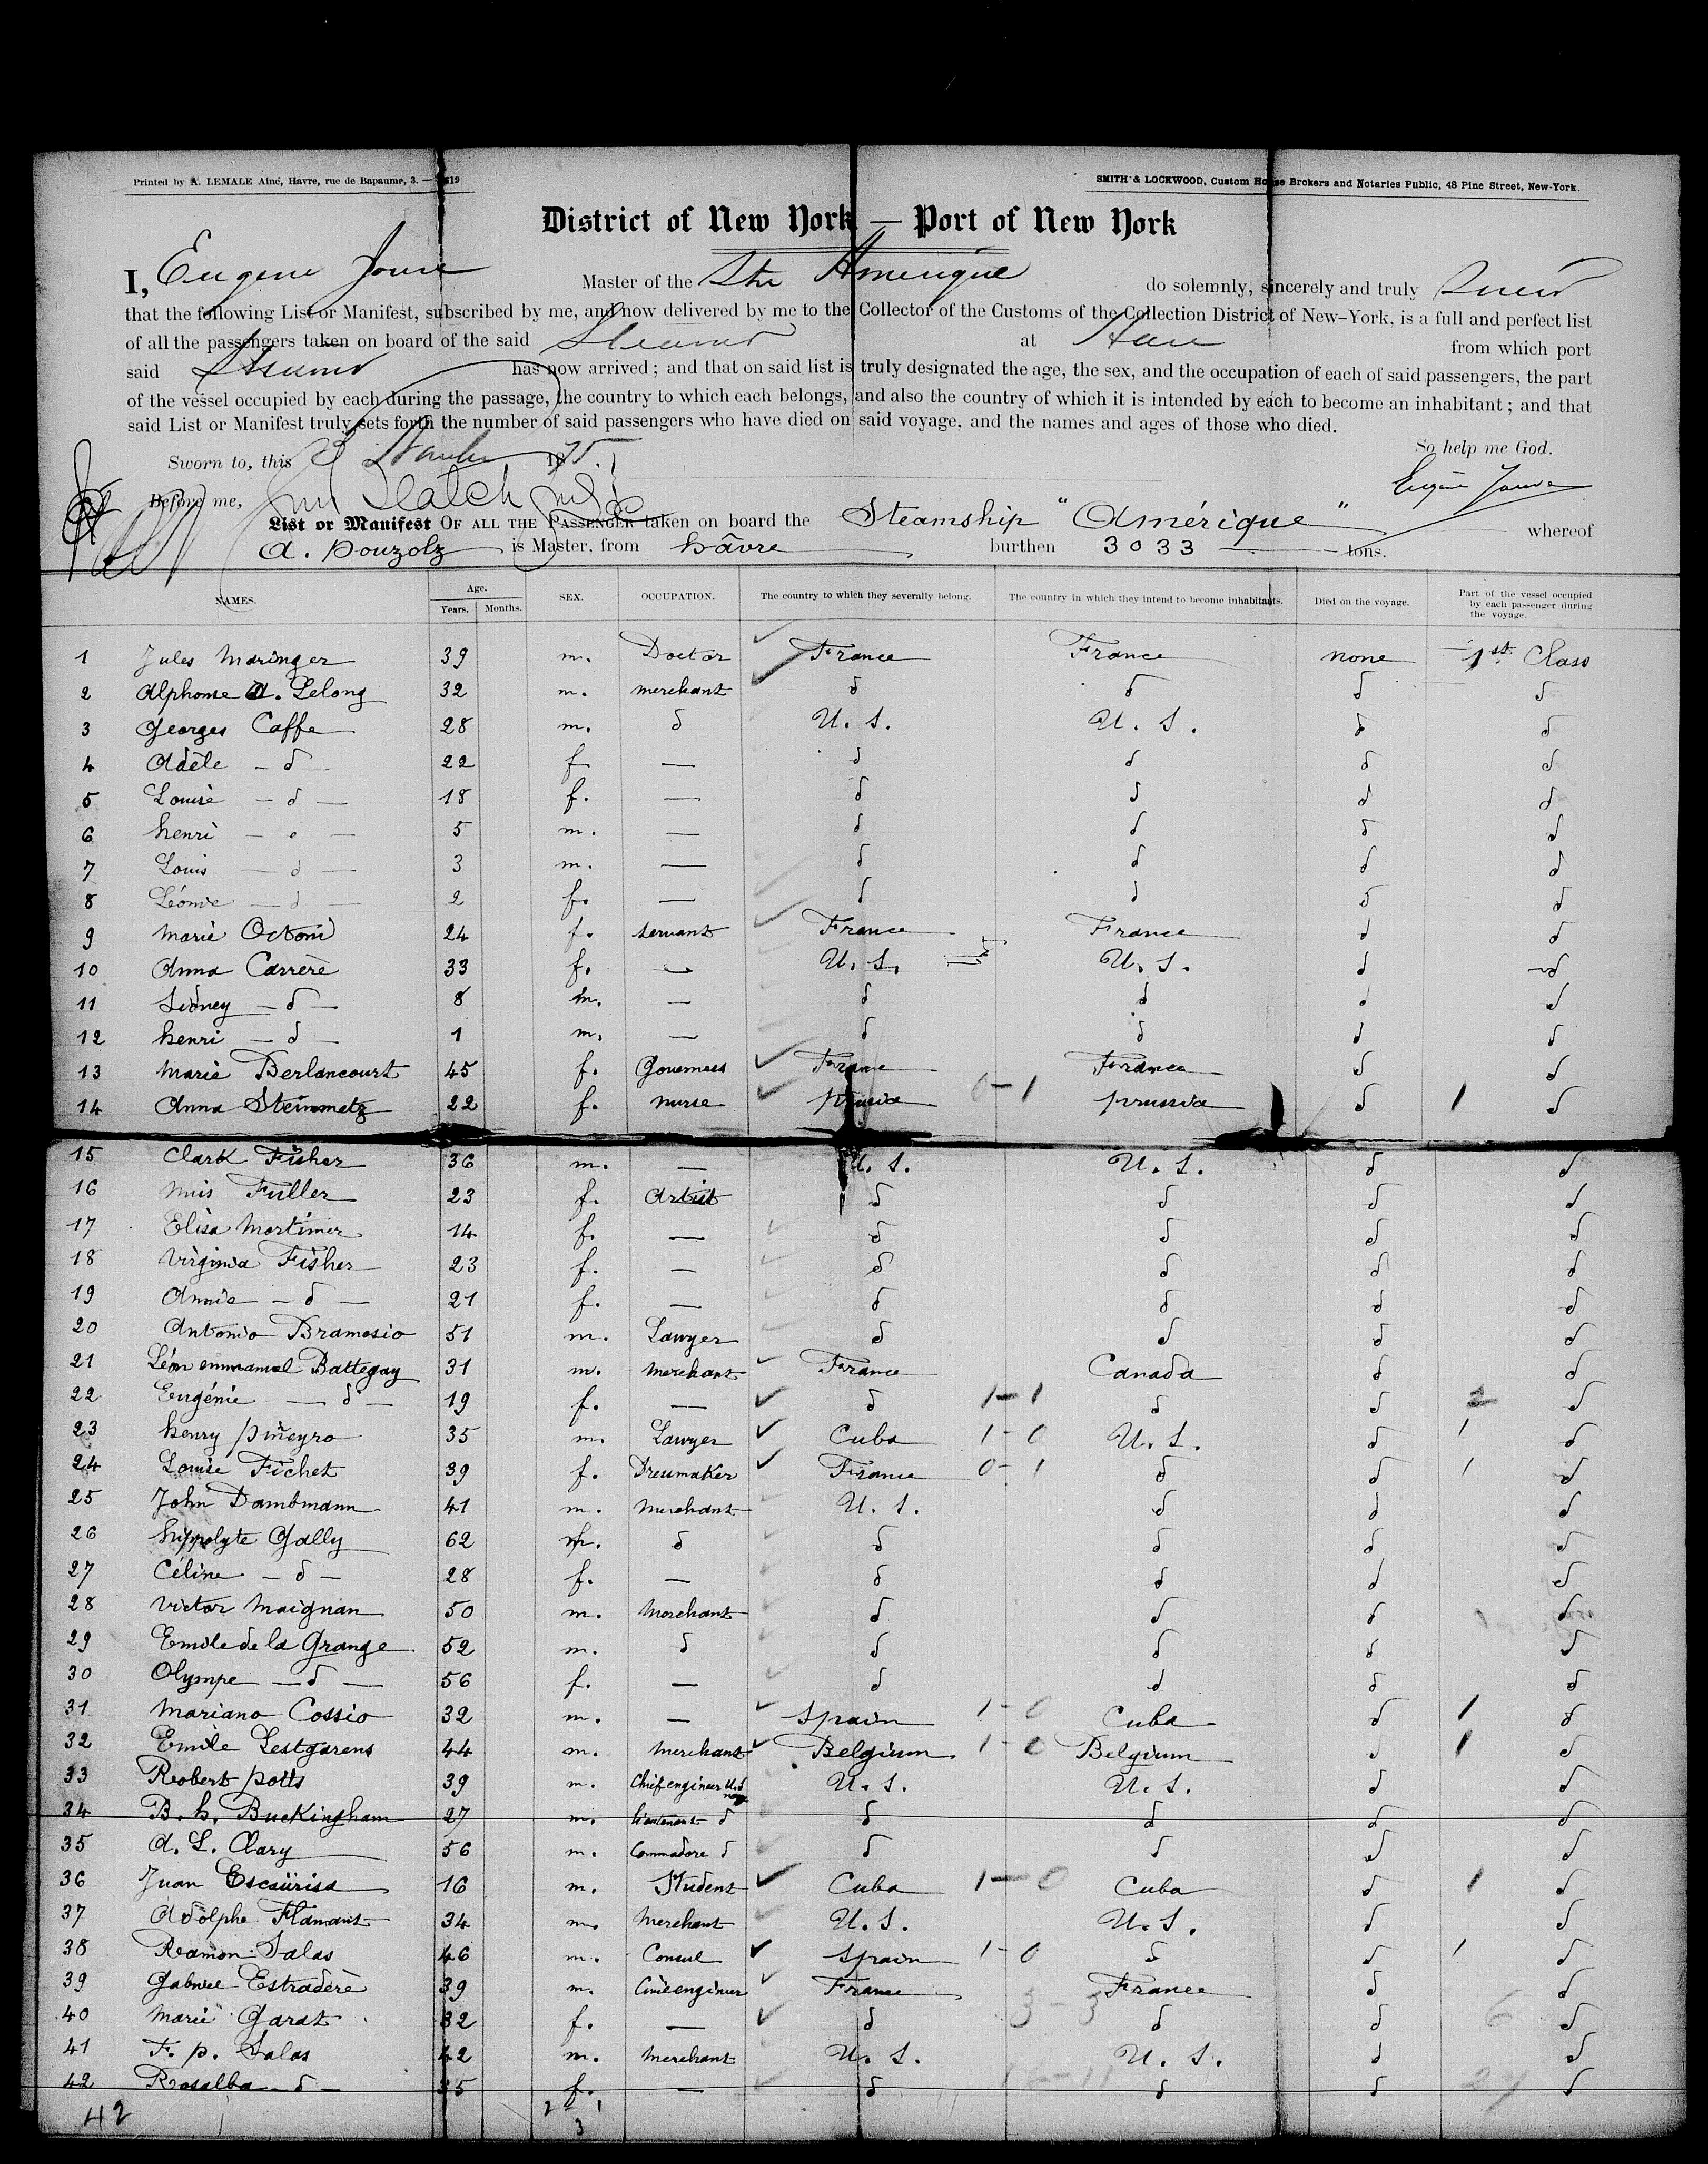 Printed by A. LEMALE Ainé, Havre, rue de Bapaume, 3. —
SMITH & LOCKWOOD, Custom House Brokers and Notaries Public, 48 Pine Street, New-York.
District of New York — Port of New York
I, Eugene Master of the Str Amerique do solemnly, sincerely and truly swear
that the following List or Manifest, subscribed by me, and now delivered by me to the Collector of the Customs of the Collection District of New-York, is a full and perfect list
of all the passengers taken on board of the said Steamer at from which port
said Steamer has now arrived; and that on said list is truly designated the age, the sex, and the occupation of each of said passengers, the part
of the vessel occupied by each during the passage, the country to which each belongs, and also the country of which it is intended by each to become an inhabitant; and that
said List or Manifest truly sets forth the number of said passengers who have died on said voyage, and the names and ages of those who died.
So help me God.
Sworn to, this 1875.
Before me,
List or Manifest OF ALL THE PASSENGER taken on board the Steamship "Amérique" whereof
A. Pouzolz is Master, from hâvre burthen 3033 tons.
NAMES. Age. Years. Months. SEX. OCCUPATION. The country to which they severally belong. The country in which they intend to become inhabitants. Died on the voyage. Part of the vessel occupied by each passenger during the voyage.
1 Jules Maringer 39 m. Doctor France France none 1st Class
2 Alphonse A. Lelong 32 m. merchant d d d d
3 Georges Caffe 28 m. d U. S. U. S. d d
4 Adèle — d 22 f. — d d d d
5 Louise — d — 18 f. — d d d d
6 henri — d — 5 m. — d d d d
7 Louis — d — 3 m. — d d d d
8 Léonie — d — 2 f. — d d d d
9 Marie Octoni 24 f. servant France France d d
10 Anna Carrère 33 f. — U. S. U. S. d d
11 Sidney — d — 8 m. — d d d d
12 henri — d — 1 m. — d d d d
13 Marie Berlancourt 45 f. Governess France France d d
14 Anna Steinmetz 22 f. nurse prussia 0-1 prussia d 1 d
15 Clark Fisher 36 m. — U. S. U. S. d d
16 Miss Fuller 23 f. Artist d d d d
17 Elisa Mortimer 14 f. — d d d d
18 Virginia Fisher 23 f. — d d d d
19 Annie — d — 21 f. — d d d d
20 Antonio Bramosio 51 m. Lawyer d d d d
21 Léon emmanuel Battegay 31 m. merchant France Canada d d
22 Eugénie — d — 19 f. — d 1-1 d d 2 d
23 henry piñeyro 35 m. Lawyer Cuba 1-0 U. S. d 1 d
24 Louise Fichet 39 f. Dressmaker France 0-1 d d 1 d
25 John Dambmann 41 m. merchant U. S. d d d
26 hippolyte Gally 62 m. d d d d d
27 Céline — d — 28 f. — d d d d
28 Victor Maignan 50 m. Merchant d d d d
29 Emile de la Grange 52 m. d d d d d
30 Olympe — d — 56 f. — d d d d
31 Mariano Cossio 32 m. — Spain 1-0 Cuba d 1 d
32 Emile Lestgarens 44 m. merchant Belgium 1-0 Belgium d 1 d
33 Robert potts 39 m. Chief engineer U.S. navy U. S. U. S. d d
34 B. h. Buckingham 27 m. lieutenant d d d d d
35 A. L. Clary 56 m. Commadore d d d d d
36 Juan Escaürisa 16 m. Student Cuba 1-0 Cuba d 1 d
37 Adolphe Flamant 34 m. Merchant U. S. U. S. d d
38 Ramon Salas 46 m. Consul Spain 1-0 d d 1 d
39 Gabriel Estradère 39 m. Civil engineer France France d d
40 Marie Garat 32 f. — d 3-3 d d 6 d
41 F. p. Salas 42 m. merchant U. S. U. S. d d
42 Rosalba — d — 35 f. — d 16-11 d d 27 d
42 2 1
3